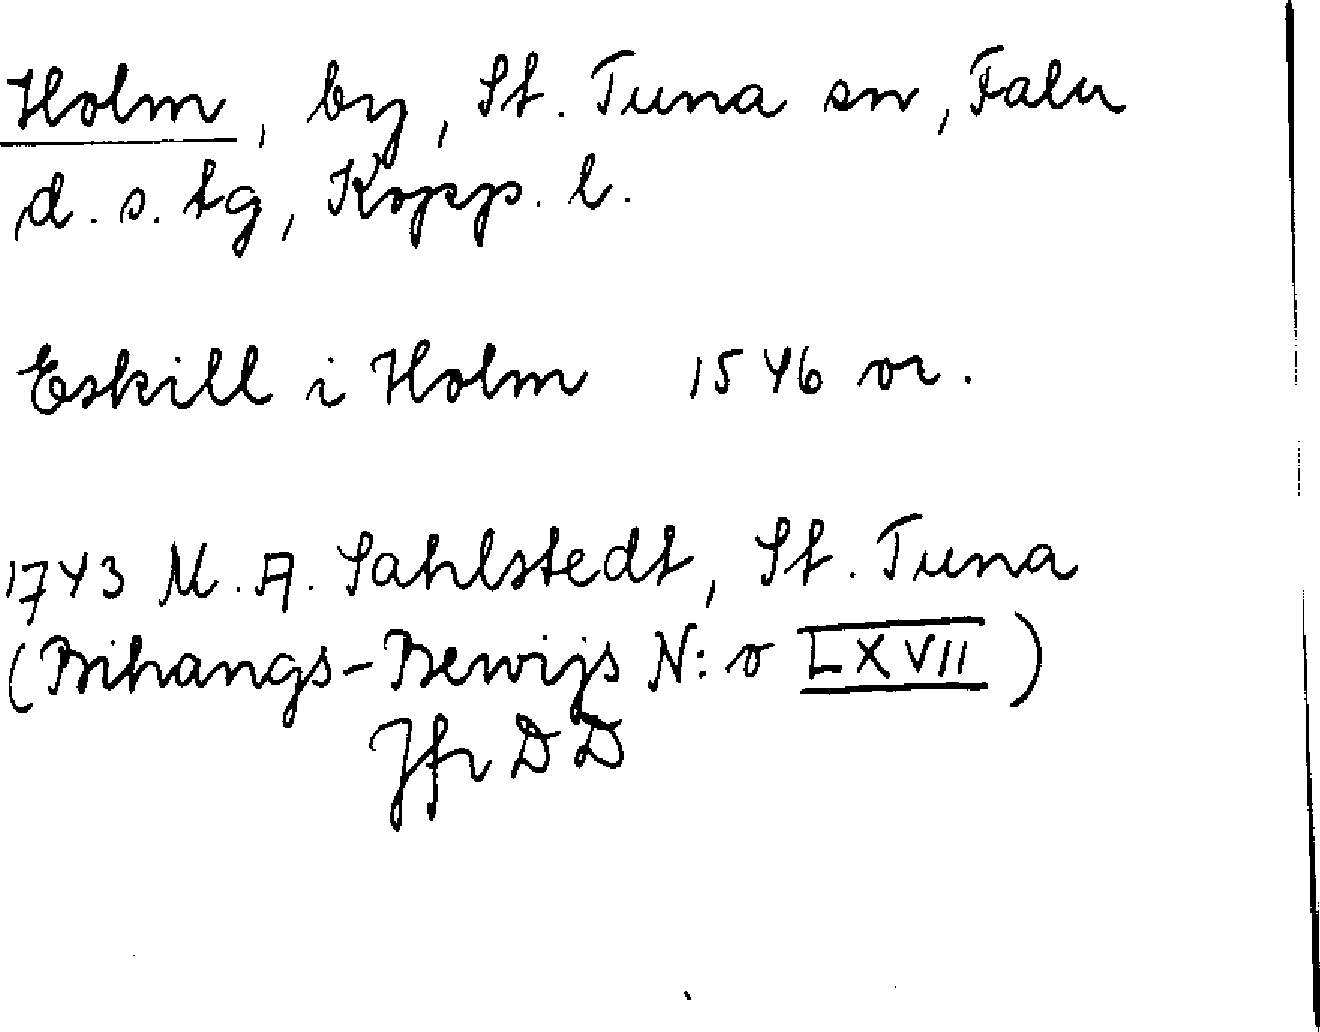 Holm, by, St. Tuna sn, Falu
d. s. tg, Kopp. l.
Eskill i Holm 1546 or.
1743 M. A. Sahlstedt, St. Tuna
(Bihangs-Bewijs N:o LXVII)
Jfr DD